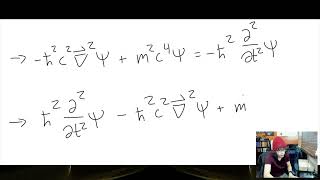 → -ħ²c²∇⃗²ψ + m²c⁴ψ = -ħ² ∂²/∂t² ψ
→ ħ² ∂²/∂t² ψ - ħ²c²∇⃗²ψ + m